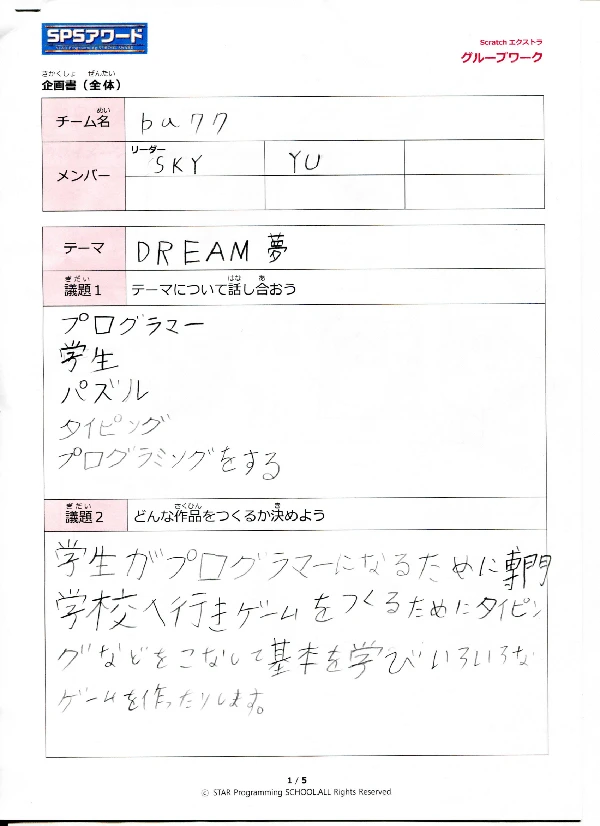 SPSアワード
STAR Programming SCHOOL AWARD
Scratch エクストラ
グループワーク
きかくしょ ぜんたい
企画書（全体）
めい
チーム名 bug77
リーダー
メンバー SKY YU
テーマ DREAM 夢
ぎだい はな あ
議題1 テーマについて話し合おう
プログラマー
学生
パズル
タイピング
プログラミングをする
ぎだい さくひん き
議題2 どんな作品をつくるか決めよう
学生がプログラマーになるために専門
学校へ行きゲームをつくるためにタイピン
グなどをこなして基本を学びいろいろな
ゲームを作ったりします。
1 / 5
© STAR Programming SCHOOL.ALL Rights Reserved